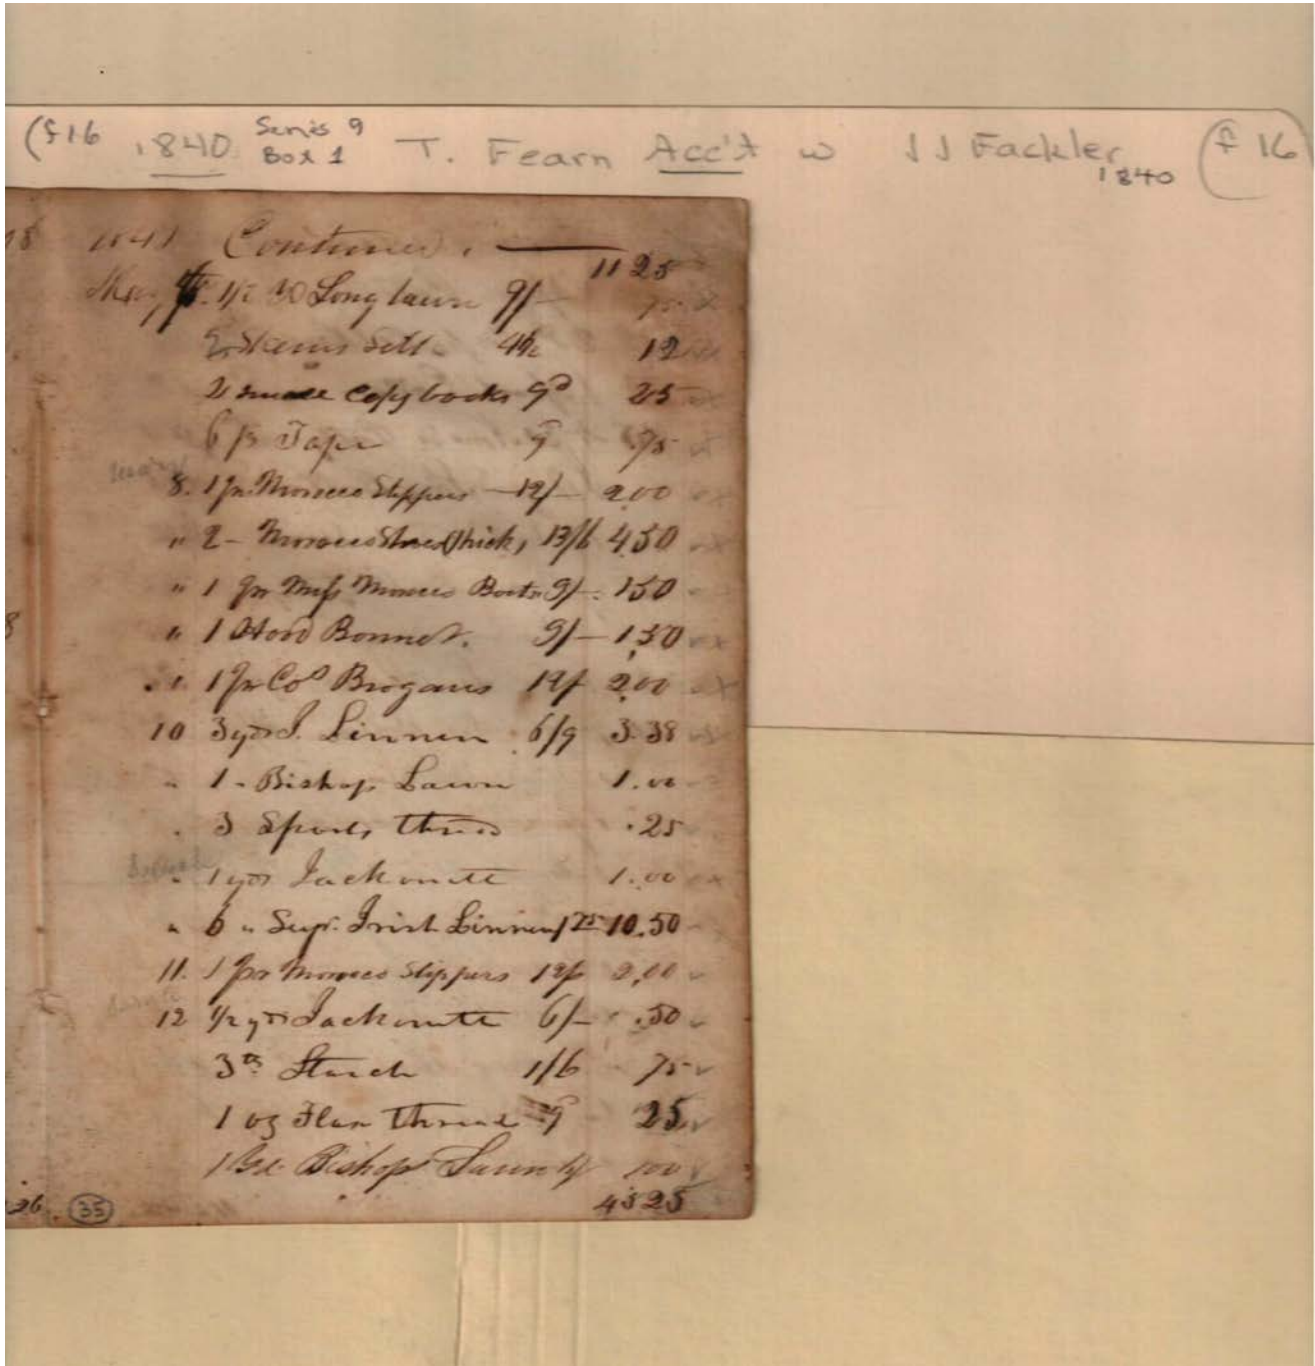 (f 16 1840 Series 9 Box 1 T. Fearn Acc't w J J Fackler 1840 (f 16)
18 1841 Continued. 11 25
May 1/2 Long lawn 9/- 75
2 Skeins Silk 4½ 12
2 small Copy books 9d 25
6 ps Tape 9 75
8. 1 pr. Morocco Slippers 12/- 2.00
" 2 - Morocco Shoes (thick) 13/6 4.50
" 1 pr Miss Morocco Boots 9/- 1.50
" 1 Hood Bonnet. 9/- 1.50
" 1 pr Cod Brogans 12/ 2.00
10 3 yds I. Linnen 6/9 3.38
" 1 - Bishop Lawn 1.00
" 3 Spools thread .25
" 1 yds Jackonette 1.00
" 6 " Supr. Irish Linnen 1 75 10.50
11. 1 pr Morocco Slippers 12/ 2.00
12 1/2 yds Jackonette 6/- .50
3 lb Starch 1/6 75
1 oz Flax thread 25
1 Bishop Lawn 100
26 35 43 25